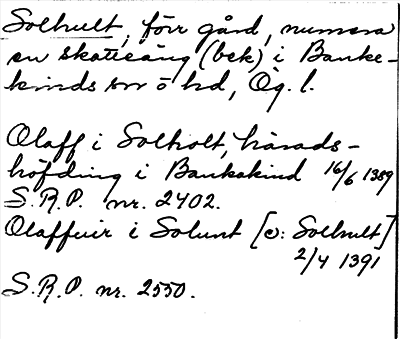 Solhult, förr gård, numera
en skatteäng (bek) i Banke-
kinds sn o hd, Ög. l.
Olaff i Solholt, härads-
höfding i Bankakind 16/6 1389
S.R.P. nr. 2402.
Olaffuir i Solunt [o: Solhult]
2/4 1391
S.R.P. nr. 2550.